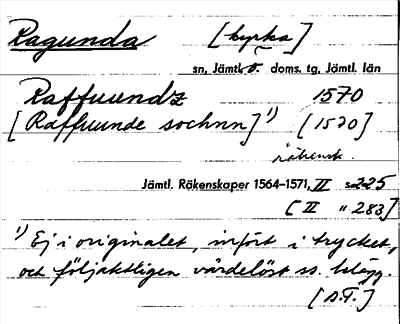 Ragunda [kyrka]
sn, Jämtl. ö. doms. tg, Jämtl. län
Raffuundz 1570
[Raffuunde sochnn]¹⁾ [1570]
räkensk.
Jämtl. Räkenskaper 1564–1571, II s. 225
[II " 283]
¹⁾ Ej i originalet, infört i trycket,
och följaktligen värdelöst ss. belägg.
[D.F.]